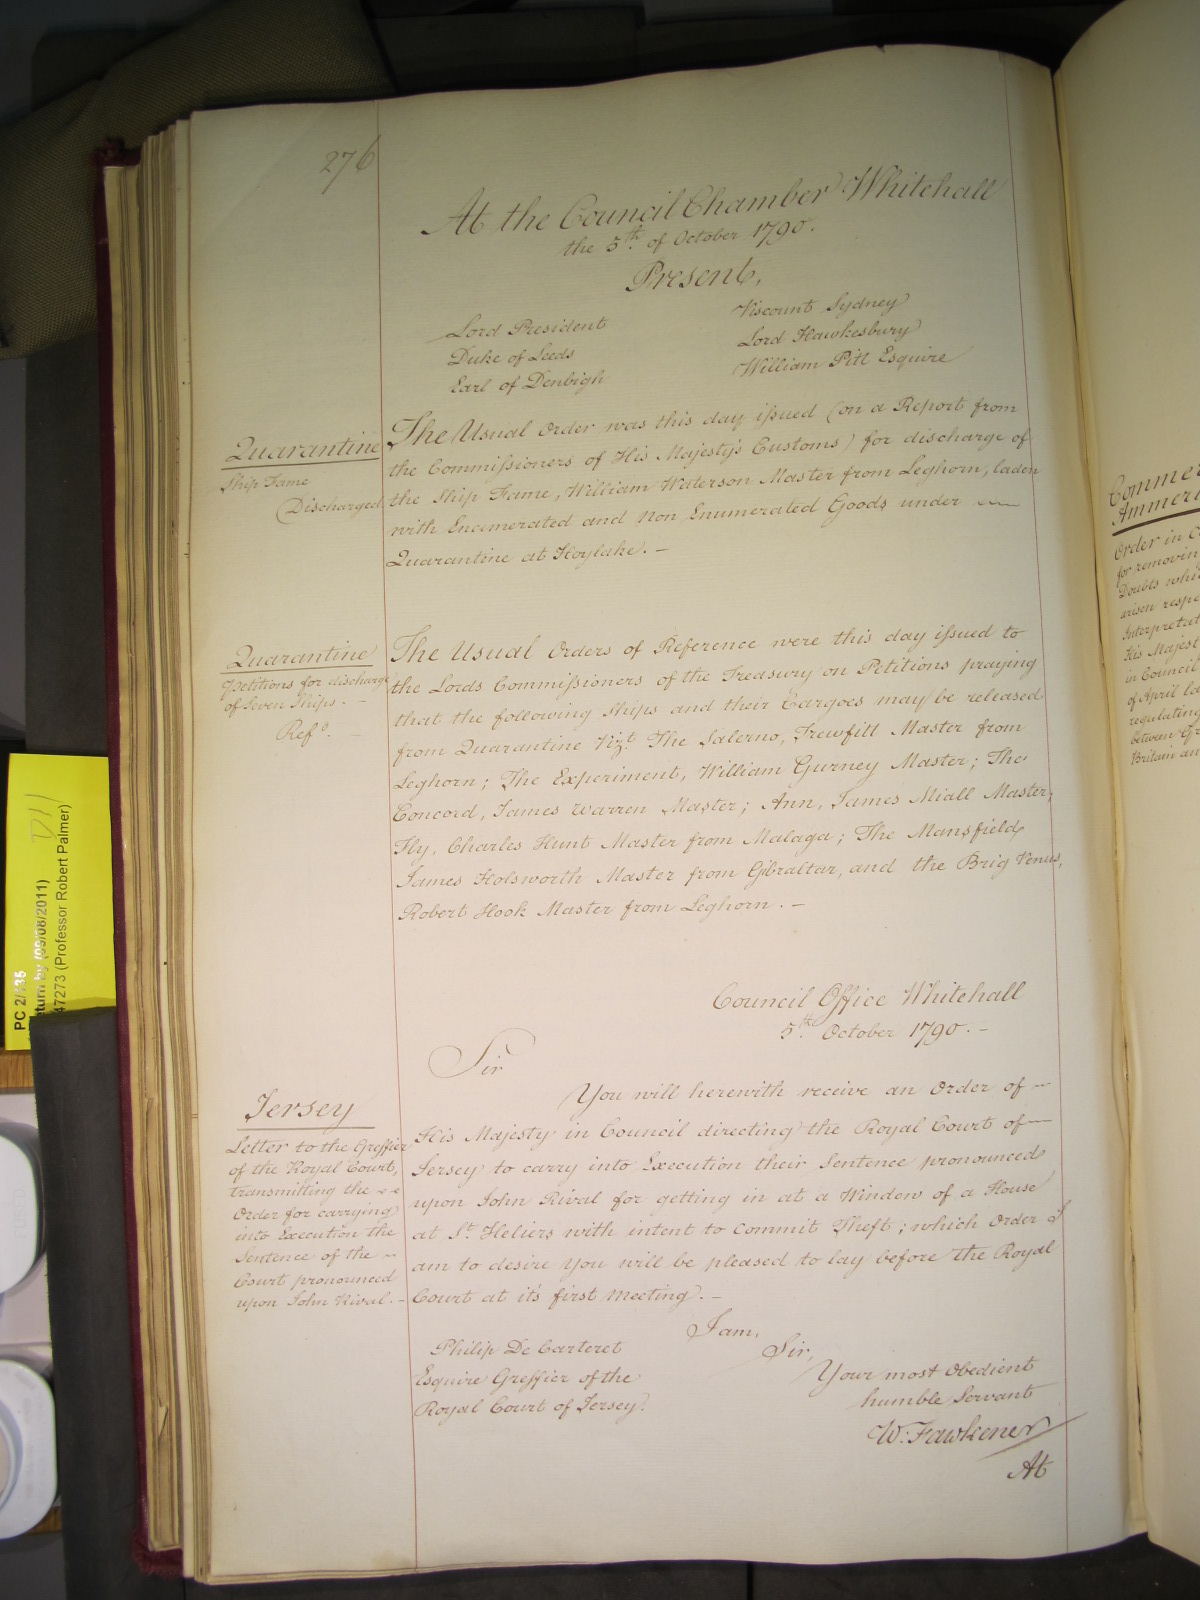 276
At the Council Chamber Whitehall
the 5th. of October 1790.
Present,
Lord President
Duke of Leeds
Earl of Denbigh
Viscount Sydney
Lord Hawkesbury
William Pitt Esquire
Quarantine
Ship Fame
Discharged
The Usual Order was this day issued (on a Report from
the Commissioners of His Majesty's Customs) for discharge of
the Ship Fame, William Waterson Master from Leghorn, laden
with Enumerated and Non Enumerated Goods under
Quarantine at Hoylake. –
Quarantine
Petitions for discharge
of Seven Ships. –
Refd. –
The Usual Orders of Reference were this day issued to
the Lords Commissioners of the Treasury on Petitions praying
that the following Ships and their Cargoes may be released
from Quarantine Vizt. The Salerno, Trewfitt Master from
Leghorn; The Experiment, William Gurney Master; The
Concord, James Warren Master; Ann, James Miall Master;
Fly, Charles Hunt Master from Malaga; The Mansfield,
James Holsworth Master from Gibraltar, and the Brig Venus,
Robert Hook Master from Leghorn. –
Council Office Whitehall
5th. October 1790. –
Sir
Jersey
Letter to the Greffier
of the Royal Court,
transmitting the
Order for carrying
into Execution the
Sentence of the –
Court pronounced
upon John Rival. –
You will herewith receive an Order of –
His Majesty in Council directing the Royal Court of –
Jersey to carry into Execution their Sentence pronounced
upon John Rival for getting in at a Window of a House
at St. Heliers with intent to commit Theft; which Order I
am to desire you will be pleased to lay before the Royal
Court at it's first Meeting. –
I am,
Sir,
Your most Obedient
humble Servant
W. Fawkener
Philip De Carteret
Esquire Greffier of the
Royal Court of Jersey.
At
Commer
Ammeri
Order in C
for removin
Doubts whi
arisen respe
Interpretat
His Majest
in Council
of April la
regulating
between Gr
Britain an
PC 2/135
turn by (09/08/2011)
47273 (Professor Robert Palmer)